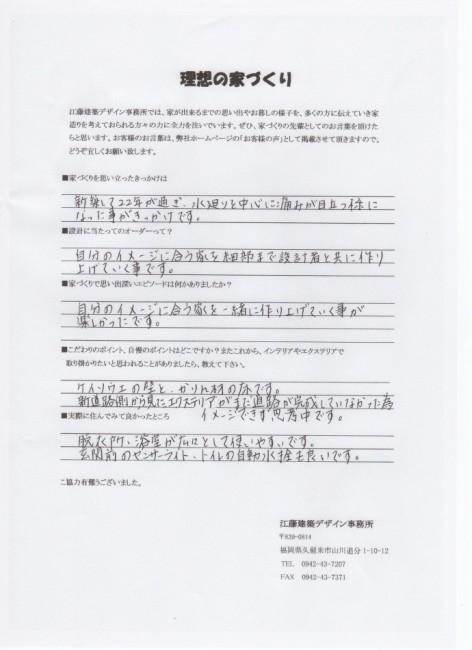 理想の家づくり
江藤建築デザイン事務所では、家が出来るまでの思い出やお暮しの様子を、多くの方に伝えていき家
造りを考えておられる方々の方に全力を注いでいます。ぜひ、家づくりの先輩としてのお言葉を頂けた
らと思います。お客様のお言葉は、弊社ホームページの「お客様の声」として掲載させて頂きますので、
どうぞ宜しくお願い致します。
■家づくりを思い立ったきっかけは
新築して22年が過ぎ、水廻りを中心に痛みが目立つ様に
なった事がきっかけです。
■設計に当たってのオーダーって？
自分のイメージに合う家を細部まで設計者と共に作り
上げていく事です。
■家づくりで思い出深いエピソードは何かありましたか？
自分のイメージに合う家を一緒に作り上げていく事が
楽しかったです。
■こだわりのポイント、自慢のポイントはどこですか？またこれから、インテリアやエクステリアで
取り掛かりたいと思われることがありましたら、教えて下さい。
ケイソウ土の壁と、かりん材の床です。
新道路側から見たエクステリアがまだ道路が完成していなかった為
イメージできず思考中です。
■実際に住んでみて良かったところ
脱衣所、浴室が広々として使いやすいです。
玄関前のセンサーライト、トイレの自動水栓も良いです。
ご協力有難うございました。
江藤建築デザイン事務所
〒839-0814
福岡県久留米市山川追分 1-10-12
TEL 0942-43-7207
FAX 0942-43-7371